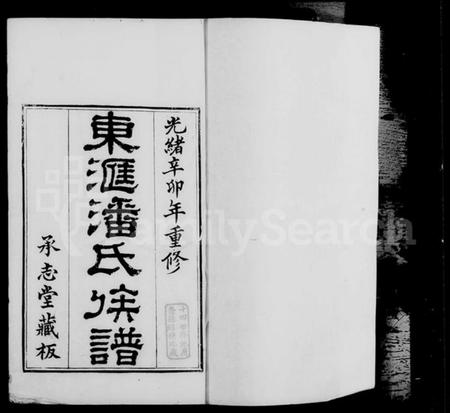 光緒辛卯年重修
東滙潘氏族譜
承志堂藏板
FamilySearch